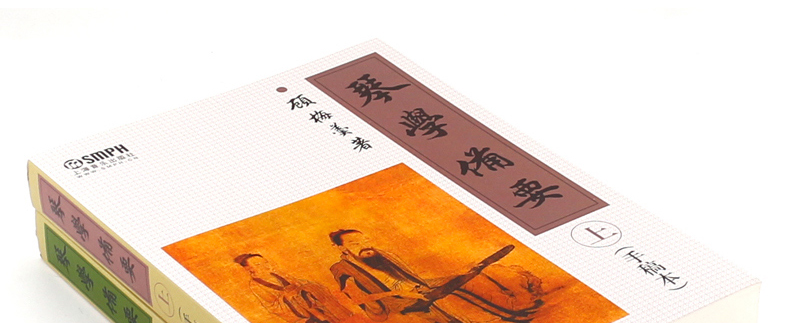 琴學備要
上
(手稿本)
顧梅羹著
SMPH
上海音乐出版社
WWW.SMPH.CN
琴學備要
上
琴學備要